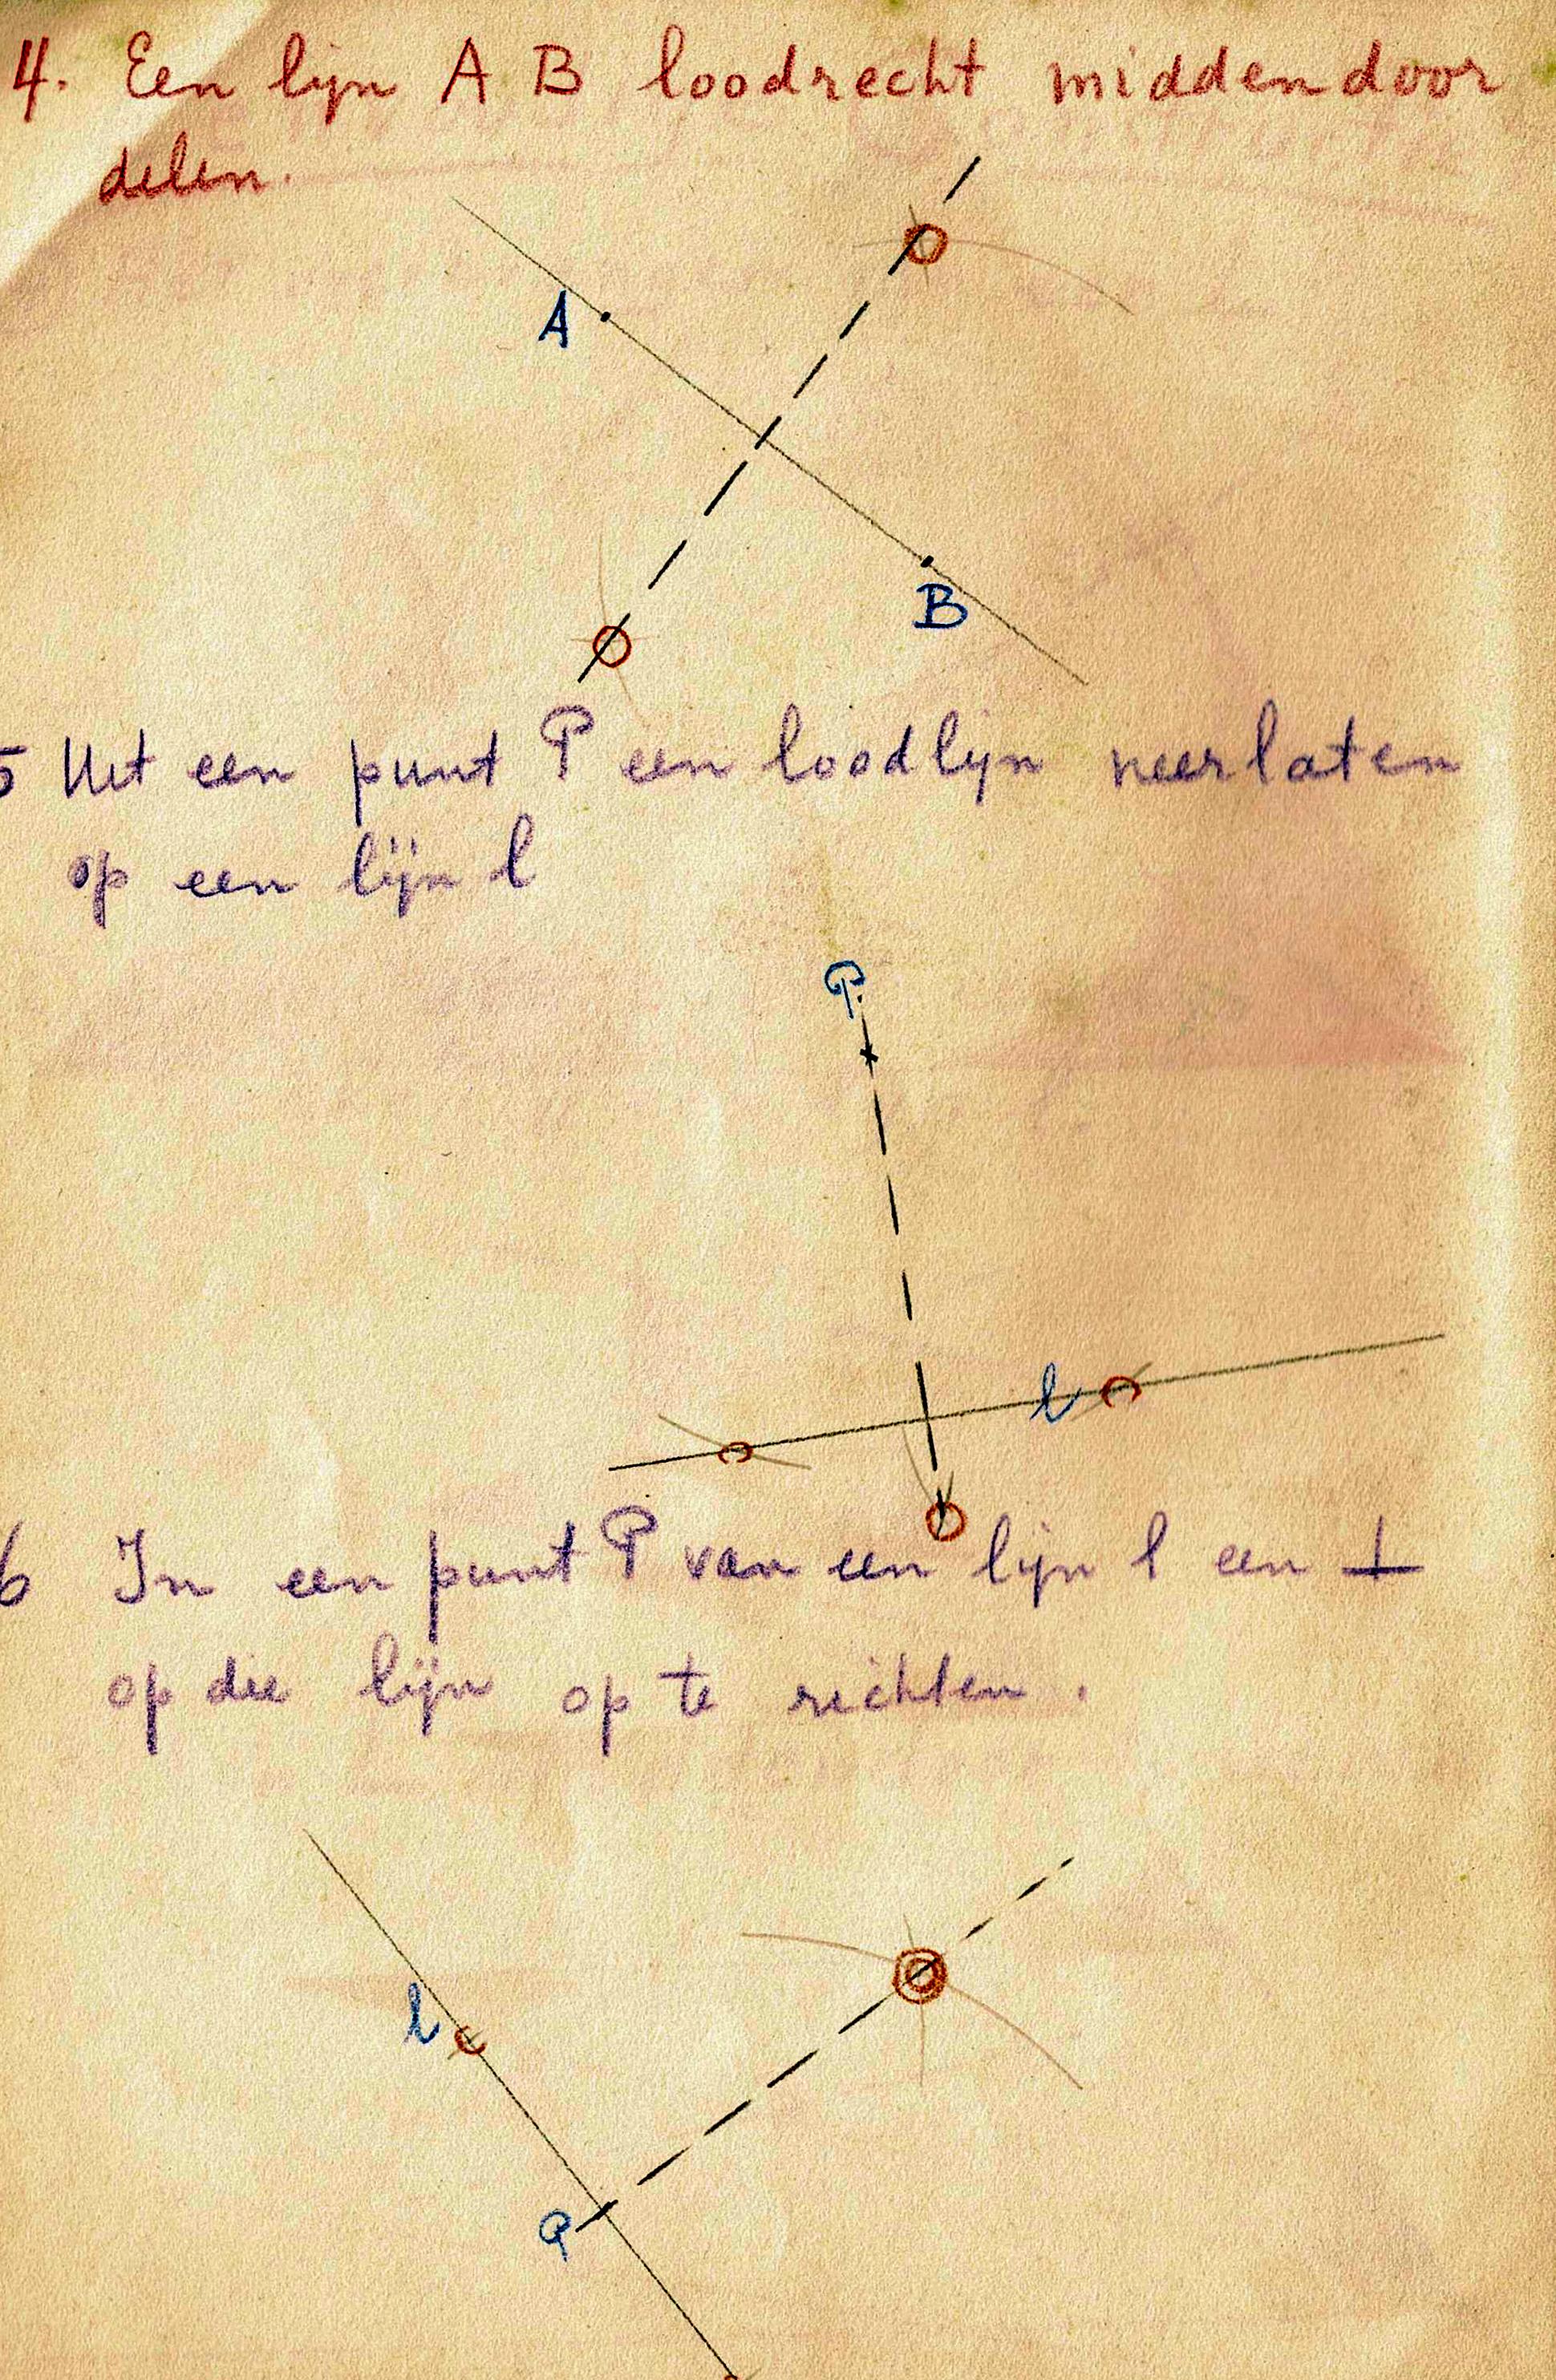 4. Een lijn A B loodrecht middendoor
delen.
A
B
5 Uit een punt P een loodlijn neerlaten
op een lijn l
P.
l
6 In een punt P van een lijn l een ⊥
op die lijn op te richten.
l
P